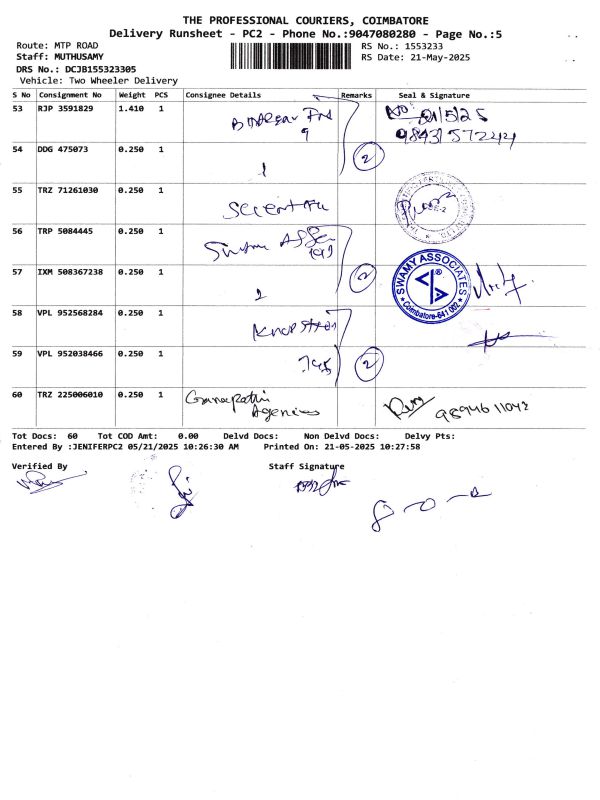 THE PROFESSIONAL COURIERS, COIMBATORE
Delivery Runsheet - PC2 - Phone No.:9047080280 - Page No.:5
Route: MTP ROAD
RS No.: 1553233
Staff: MUTHUSAMY
RS Date: 21-May-2025
DRS No.: DCJB155323305
Vehicle: Two Wheeler Delivery
S No Consignment No Weight PCS Consignee Details Remarks Seal & Signature
53 RJP 3591829 1.410 1
54 DDG 475073 0.250 1 2
55 TRZ 71261030 0.250 1
56 TRP 5084445 0.250 1
57 IXM 508367238 0.250 1 2
SWAMY ASSOCIATES
Coimbatore-641 002
58 VPL 952568284 0.250 1
59 VPL 952038466 0.250 1 2
60 TRZ 225006010 0.250 1 Ganapathi
Agencies
Tot Docs: 60 Tot COD Amt: 0.00 Delvd Docs: Non Delvd Docs: Delvy Pts:
Entered By :JENIFERPC2 05/21/2025 10:26:30 AM Printed On: 21-05-2025 10:27:58
Verified By Staff Signature